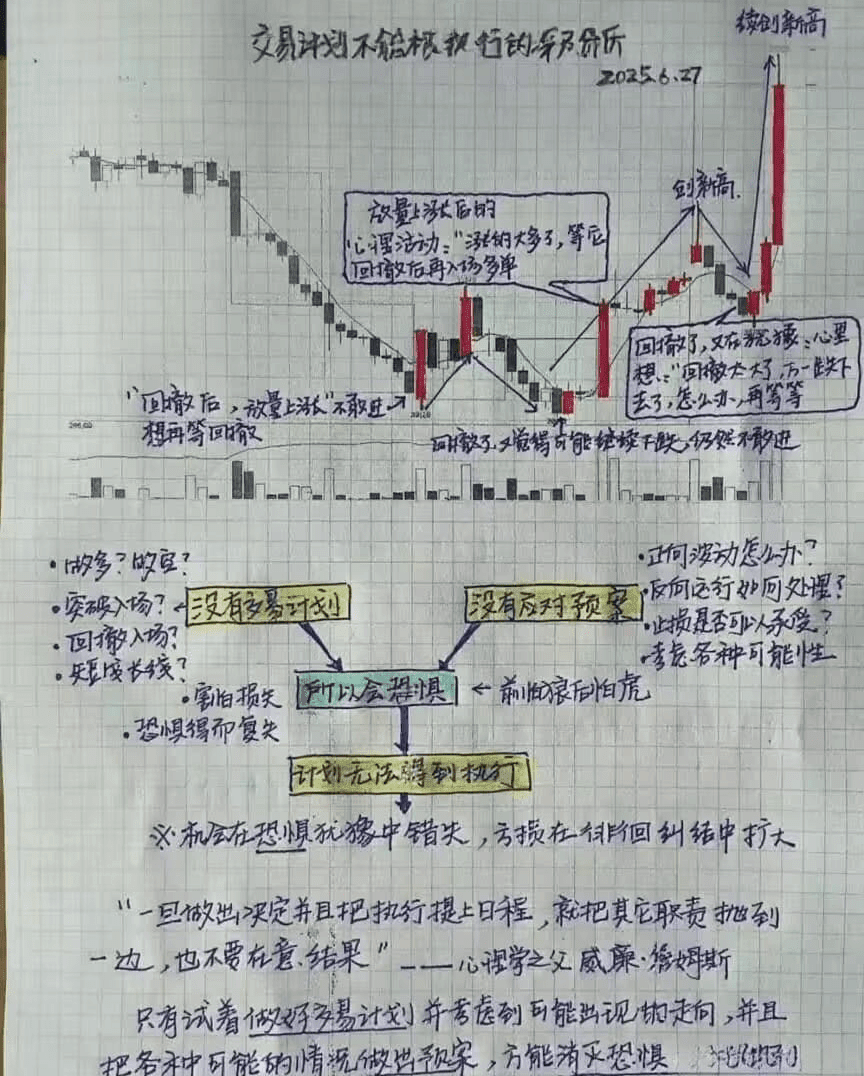 续创新高
交易计划不能被执行的原因分析
2025.6.27
创新高.
放量上涨后的
心理活动:"涨的太多了,等它
回撤后再入场多单
回撤了,又在犹豫:心里
想:"回撤太大了,万一跌下
去了,怎么办,再等等
"回撤后,放量上涨"不敢进
想再等回撤
回撤了又觉得可能继续下跌,仍然不敢进
·做多?做空?
·突破入场?
·回撤入场?
·短线长线?
没有交易计划
没有应对预案
·正向波动怎么办?
·反向运行如何处理?
·止损是否可以承受?
·考虑各种可能性
·害怕损失
·恐惧得而复失
所以会恐惧
前怕狼后怕虎
计划无法得到执行
※机会在恐惧犹豫中错失,亏损在徘徊纠结中扩大
"一旦做出决定并且把执行提上日程,就把其它职责抛到
一边,也不要在意结果"——心理学之父 威廉·詹姆斯
只有试着做好交易计划并考虑到可能出现的走向,并且
把各种可能的情况做出预案,方能消灭恐惧